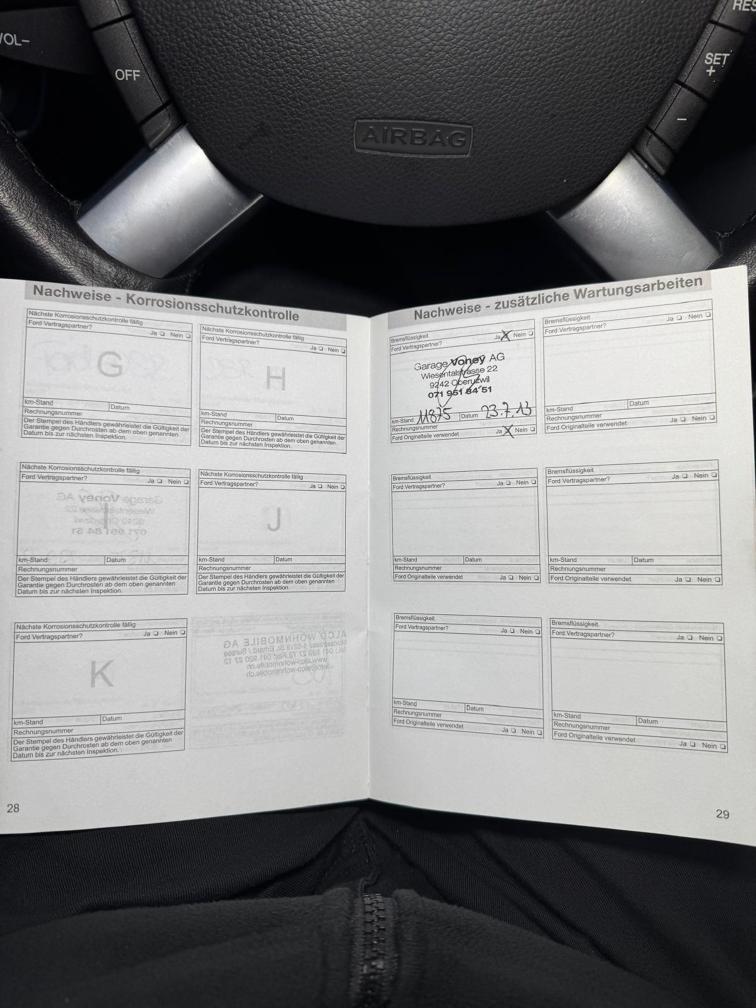 VOL–
OFF
RES
SET
+
–
AIRBAG
Nachweise - Korrosionsschutzkontrolle
Nächste Korrosionsschutzkontrolle fällig
Ford Vertragspartner? Ja ❏ Nein ❏
G
km-Stand Datum
Rechnungsnummer
Der Stempel des Händlers gewährleistet die Gültigkeit der
Garantie gegen Durchrosten ab dem oben genannten
Datum bis zur nächsten Inspektion.
Nächste Korrosionsschutzkontrolle fällig
Ford Vertragspartner? Ja ❏ Nein ❏
H
km-Stand Datum
Rechnungsnummer
Der Stempel des Händlers gewährleistet die Gültigkeit der
Garantie gegen Durchrosten ab dem oben genannten
Datum bis zur nächsten Inspektion.
Nächste Korrosionsschutzkontrolle fällig
Ford Vertragspartner? Ja ❏ Nein ❏
km-Stand Datum
Rechnungsnummer
Der Stempel des Händlers gewährleistet die Gültigkeit der
Garantie gegen Durchrosten ab dem oben genannten
Datum bis zur nächsten Inspektion.
Nächste Korrosionsschutzkontrolle fällig
Ford Vertragspartner? Ja ❏ Nein ❏
J
km-Stand Datum
Rechnungsnummer
Der Stempel des Händlers gewährleistet die Gültigkeit der
Garantie gegen Durchrosten ab dem oben genannten
Datum bis zur nächsten Inspektion.
Nächste Korrosionsschutzkontrolle fällig
Ford Vertragspartner? Ja ❏ Nein ❏
K
km-Stand Datum
Rechnungsnummer
Der Stempel des Händlers gewährleistet die Gültigkeit der
Garantie gegen Durchrosten ab dem oben genannten
Datum bis zur nächsten Inspektion.
28
Nachweise - zusätzliche Wartungsarbeiten
Bremsflüssigkeit
Ford Vertragspartner? Ja X Nein ❏
Garage Voney AG
Wiesentalstrasse 22
9242 Oberuzwil
071 951 84 51
km-Stand 11875 Datum 23.7.13
Rechnungsnummer
Ford Originalteile verwendet Ja X Nein ❏
Bremsflüssigkeit
Ford Vertragspartner? Ja ❏ Nein ❏
km-Stand Datum
Rechnungsnummer
Ford Originalteile verwendet Ja ❏ Nein ❏
Bremsflüssigkeit
Ford Vertragspartner? Ja ❏ Nein ❏
km-Stand Datum
Rechnungsnummer
Ford Originalteile verwendet Ja ❏ Nein ❏
Bremsflüssigkeit
Ford Vertragspartner? Ja ❏ Nein ❏
km-Stand Datum
Rechnungsnummer
Ford Originalteile verwendet Ja ❏ Nein ❏
Bremsflüssigkeit
Ford Vertragspartner? Ja ❏ Nein ❏
km-Stand Datum
Rechnungsnummer
Ford Originalteile verwendet Ja ❏ Nein ❏
Bremsflüssigkeit
Ford Vertragspartner? Ja ❏ Nein ❏
km-Stand Datum
Rechnungsnummer
Ford Originalteile verwendet Ja ❏ Nein ❏
29